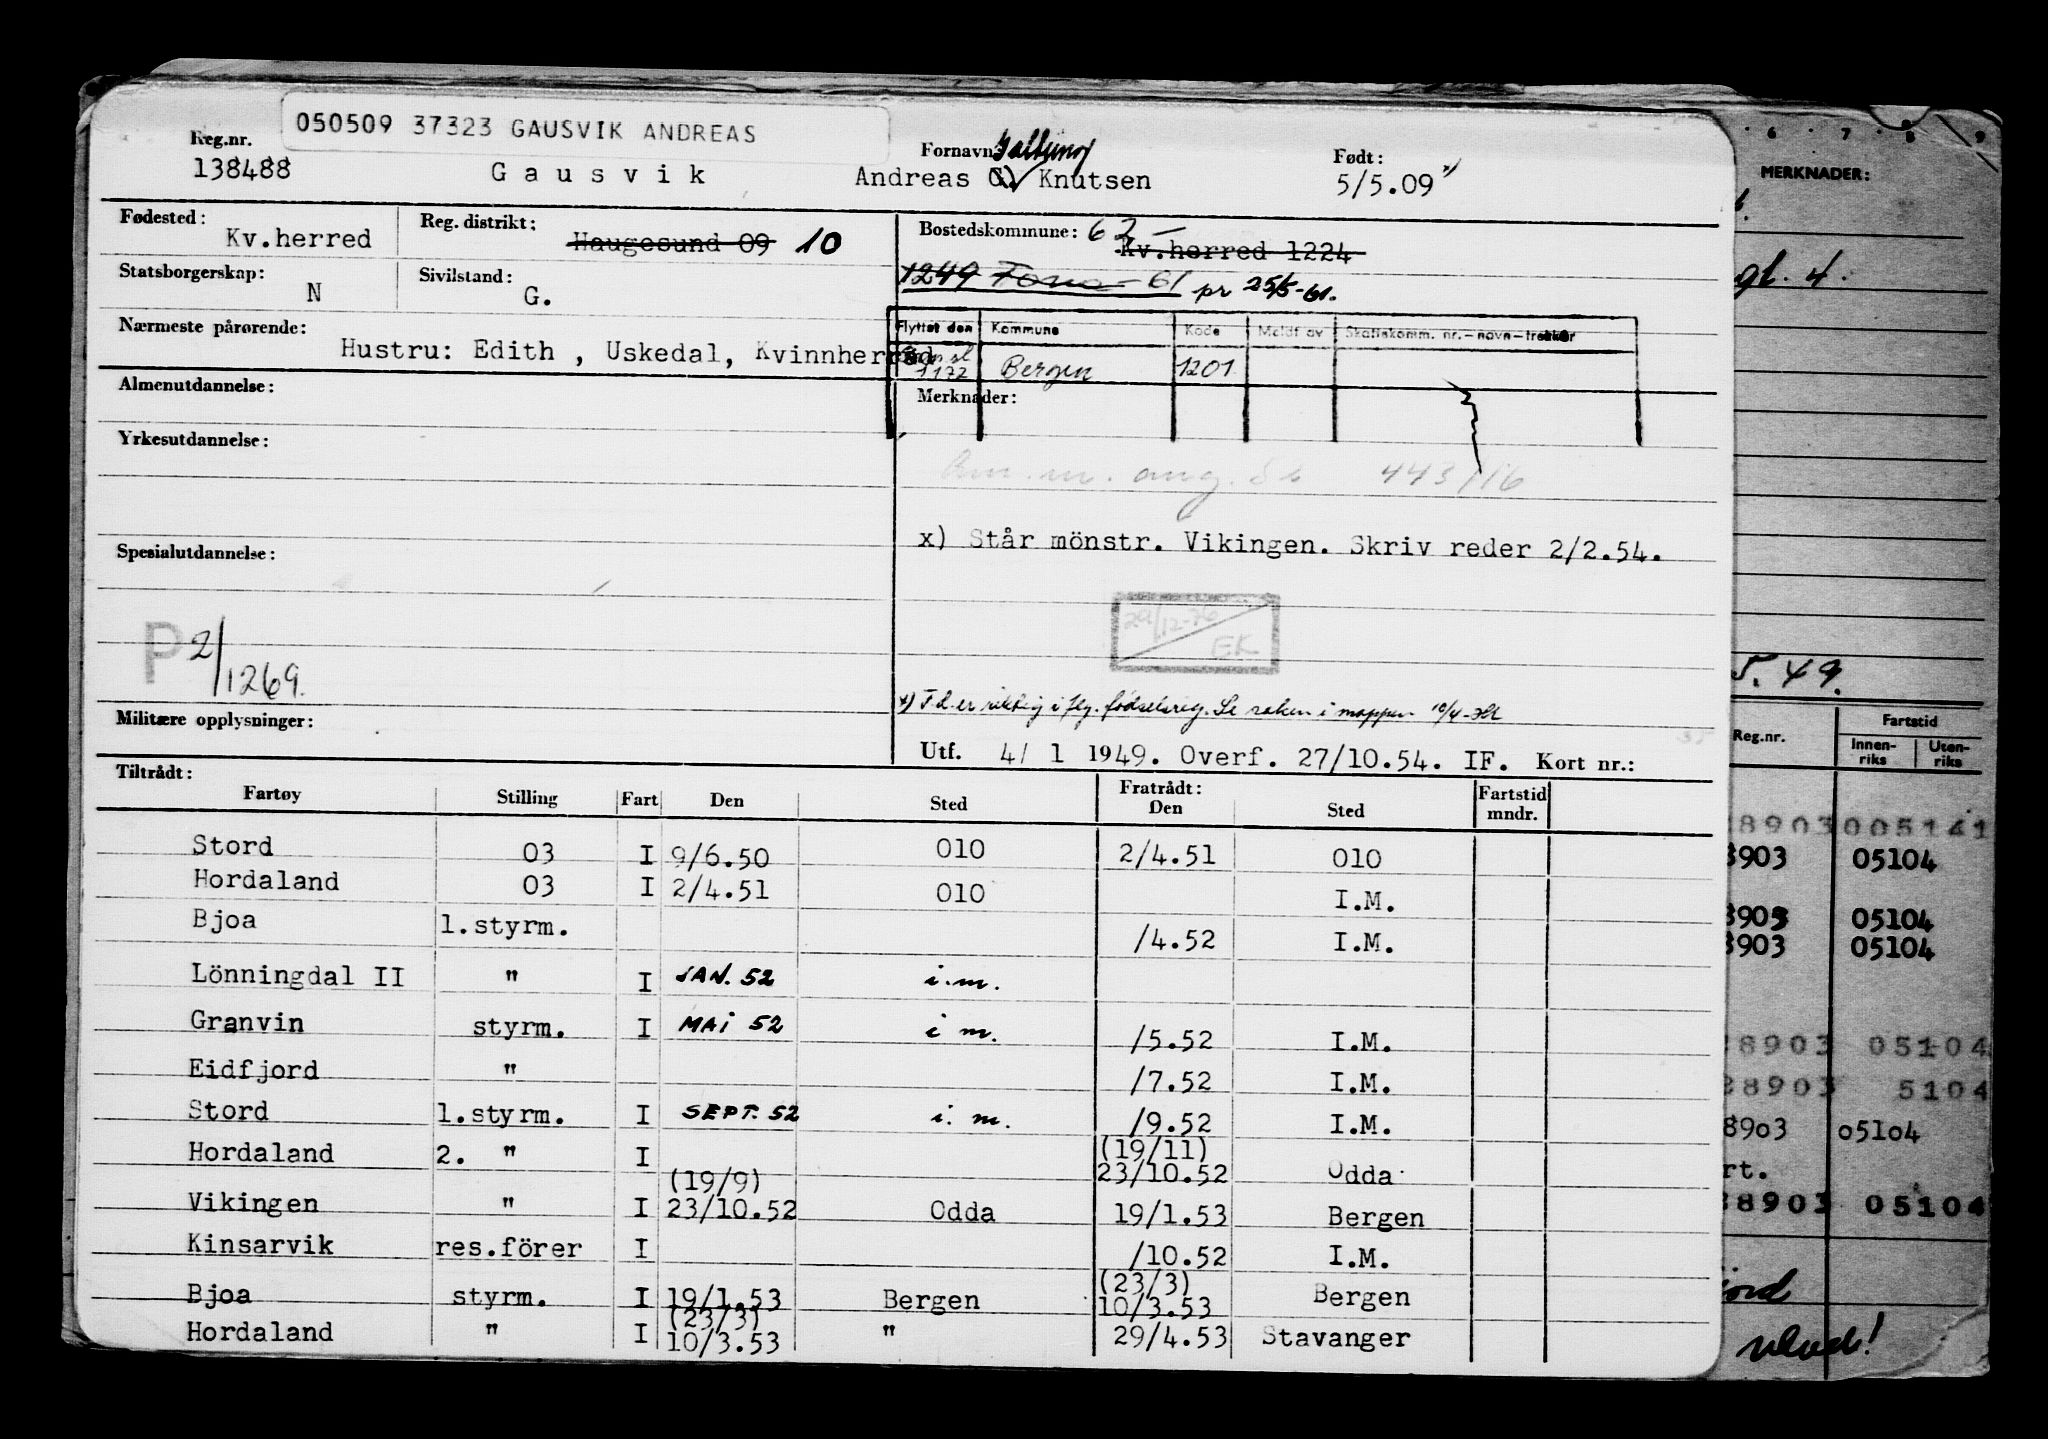 050509 37323 GAUSVIK ANDREAS
Reg.nr.
138488
Gausvik
Fornavn:
Andreas G. Knutsen
Født:
5/5.09
Fødested:
Kv.herred
Reg. distrikt:
Haugesund 09 10
Bostedskommune: 62-
Kv.herred 1224
Statsborgerskap:
N
Sivilstand:
G.
1249 Fana 61 pr 25/5-61.
Nærmeste pårørende:
Hustru: Edith , Uskedal, Kvinnherred
Flyttet den Kommune Kode Meldt av Skattekomm. nr.-navn-trekkår
1172 Bergen 1201
Almenutdannelse:
Merknader:
Yrkesutdannelse:
443/16
x) Står mönstr. Vikingen. Skriv reder 2/2.54.
Spesialutdannelse:
29/12-76
EK
P 2/1269.
x) F.d. er riktig i flg. fødselsreg. Se saken i mappen 10/4-
Militære opplysninger:
Utf. 4/ 1 1949. Overf. 27/10.54. IF. Kort nr.:
Tiltrådt:
Fartøy Stilling Fart Den Sted Fratrådt: Den Sted Fartstid mndr.
Stord 03 I 9/6.50 010 2/4.51 010
Hordaland 03 I 2/4.51 010 I.M.
Bjoa 1.styrm. /4.52 I.M.
Lönningdal II " I JAN. 52 i.m.
Granvin styrm. I MAI 52 i m. /5.52 I.M.
Eidfjord " /7.52 I.M.
Stord 1.styrm. I SEPT. 52 i. m. /9.52 I.M.
Hordaland 2. " I (19/11) 23/10.52 Odda
Vikingen " I (19/9) 23/10.52 Odda 19/1.53 Bergen
Kinsarvik res.förer I /10.52 I.M.
Bjoa styrm. I 19/1.53 Bergen (23/3) 10/3.53 Bergen
Hordaland " I (23/3) 10/3.53 " 29/4.53 Stavanger
6 7 8 9
MERKNADER:
gl. 4.
5.49.
Reg.nr. Fartstid
Innen-riks Uten-riks
8903005141
8903 05104
8903 05104
8903 05104
28903 05104
28903 5104
8903 05104
rt.
28903 05104